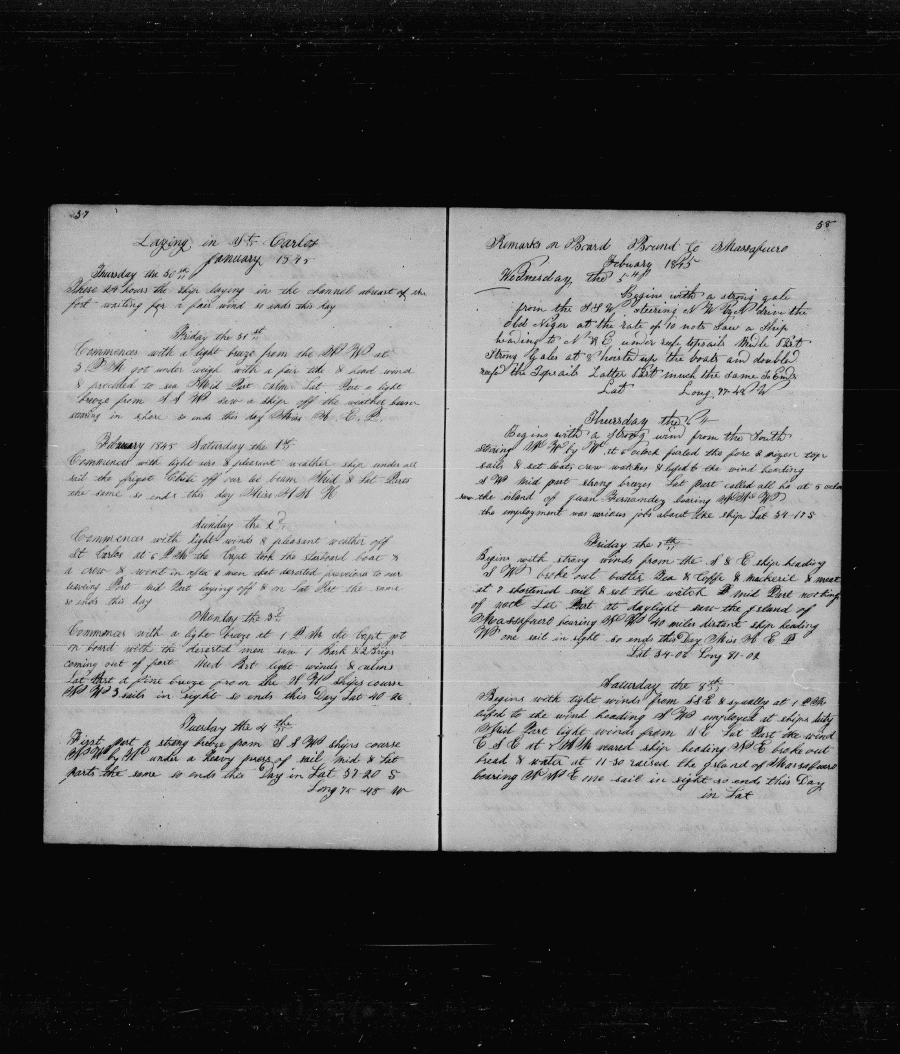 57
Laying in St. Carlos
January 1845
Thursday the 30th
These 24 hours the ship laying in the channel abreast of the
fort waiting for a fair wind so ends this day
Friday the 31st
Commences with a light breze from the N W at
3 P M got under weigh with a fair tide & head wind
& proceded to sea Mid Part calm Lat Part a light
breze from S S W saw a ship off the weather beam
standing in shore so ends this day Miss H. E. P.
February 1845 Saturday the 1st
Commences with light airs & pleasant weather ship under all
sail the frigot Chili off our lee beam Mid & Lat Parts
the same so ends this day Miss H
Sunday the 2d
Commences with light winds & pleasant weather off
St Carlos at 6 P M the Capt took the starboard boat &
a crew & went in after 2 men that deserted previous to our
leaveing Port Mid Part laying off & on Lat Part the same
so ends this day
Monday the 3d
Commences with a light breze at 1 P M the Capt got
on board with the deserted men saw 1 Bark & 2 Brigs
coming out of port Mid Part light winds & calms
Lat Part a fine breze from the ships course
N W 3 sails in sight so ends this Day Lat 40
Tuesday the 4th
First part a strong breze from S S W ships course
N W by W under a heavy press of sail Mid & Lat
parts the same so ends this Day in Lat 37-20 S
Long 75-48 W
58
Remarks on Board Bound to Massafuero
Febuary 1845
Wednesday the 5th
Begins with a strong gale
from the S S W steering N W by N drive the
Old Niger at the rate of 10 nots Saw a Ship
heading to N & E under reef topsails Midle Part
Strong Gales at 8 hoisted up the boats and doubled
reefd the Topsails Latter Part much the same So Ends
Lat Long. 77-48 W
Thurrsday the 6th
Begins with a Strong wind from the South
stering N W by W at 6 oclock furled the fore & mizen top
sails & set boats crew watches & lufed to the wind heading
S W mid part strong brezes Lat part called all ha at 5 oclock
saw the island of Juan Fernandez bearing
the employment was various jobs about the ship Lat 34-17 S
Friday the 7th
Begins with strong winds from the S & E ship heading
S W broke out butter Pea & Coffe & mackeril & meat
at 7 shortened sail & set the watch mid Part nothing
of note Lat Part at daylight saw the Island of
Massafuero bearing 40 miles distant ship heading
W one sail in sight so ends this Day Miss H E P
Lat 34-02 Long 81-02
Saturday the 8th
Begins with light winds from S S E & squally at 1 P M
lufed to the wind heading S W employed at ships duty
Mid Part light winds from Lat Part the wind
E S E at 7 A M weared ship heading N E broke out
bread & water at 11-30 raised the Island of Massafuero
bearing N N E one sail in sight so ends this Day
in Lat